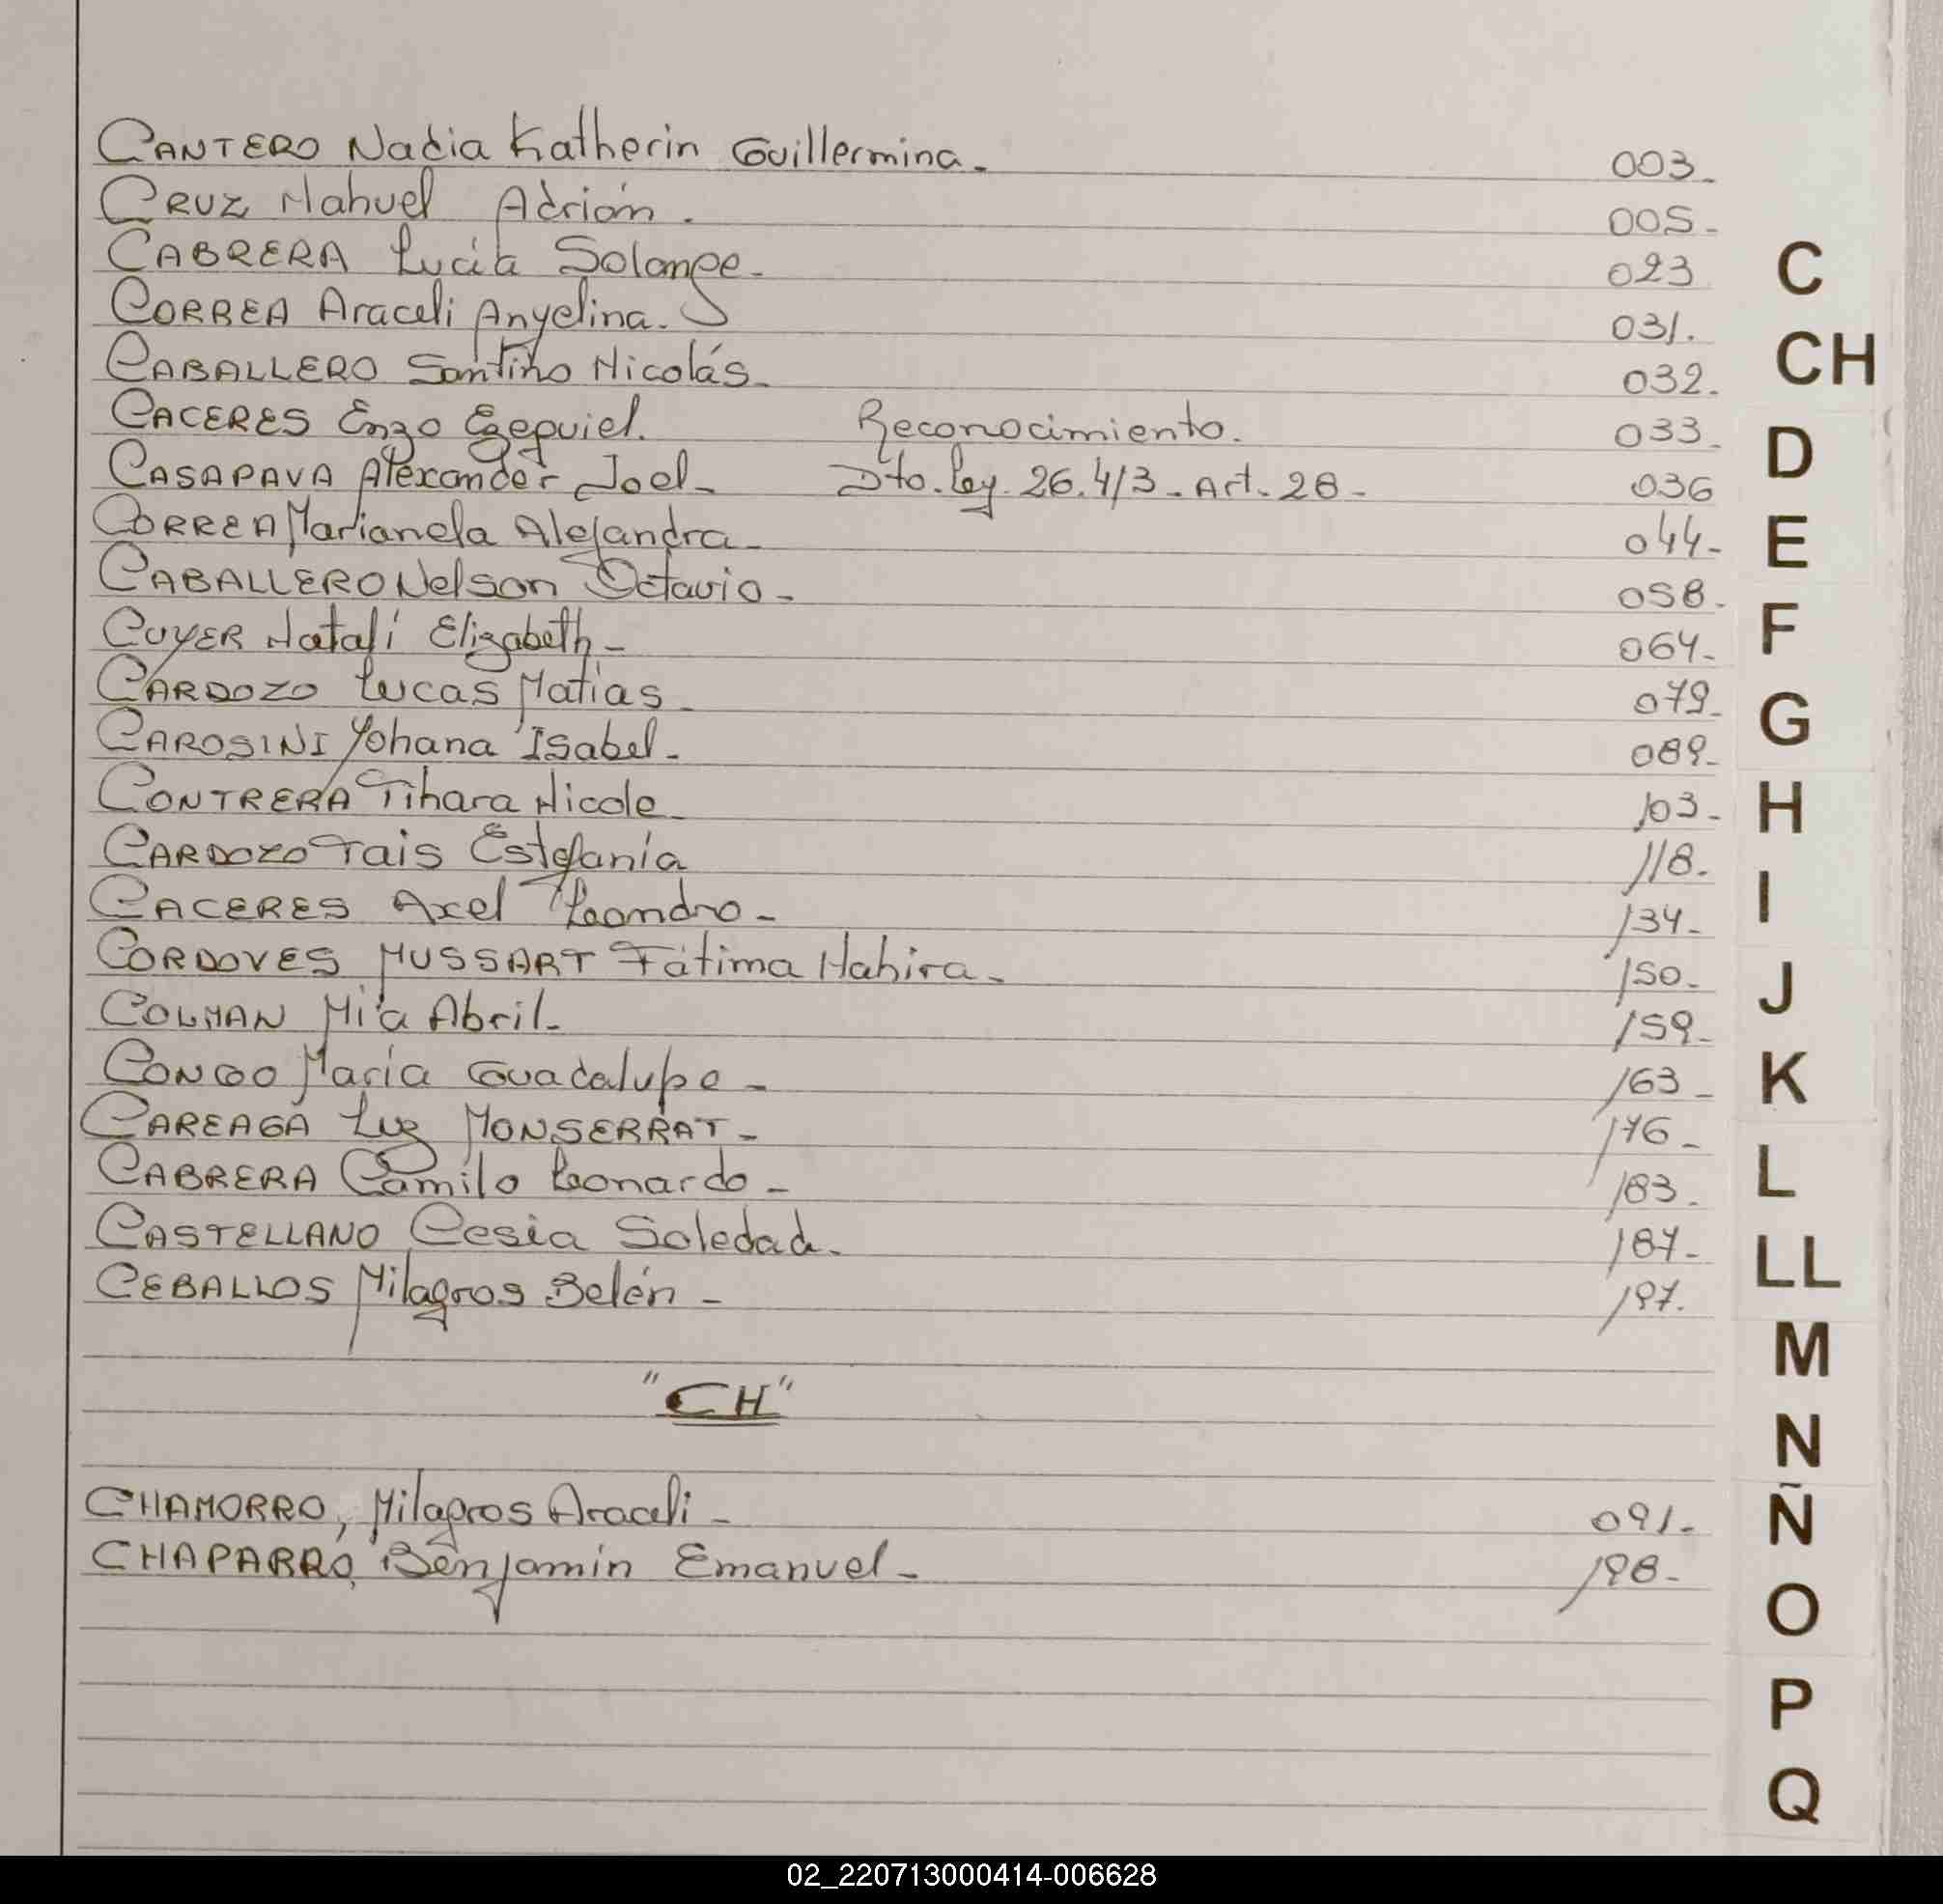 CANTERO Nadia Katherin Guillermina. 003.
CRUZ Nahuel Adrián. 005.
CABRERA Lucía Solange. 023
CORREA Araceli Anyelina. 031.
CABALLERO Santino Nicolás. 032.
CACERES Enzo Ezequiel. Reconocimiento. 033.
CASAPAVA Alexander Joel. Dto. Ley. 26.413. Art. 28. 036
CORREA Marianela Alejandra. 044.
CABALLERO Nelson Octavio. 058.
CUYER Natalí Elizabeth. 064.
CARDOZO Lucas Matías. 079.
CAROSINI Yohana Isabel. 089.
CONTRERA Tihara Nicole. 103.
CARDOZO Tais Estefanía 118.
CACERES Axel Leandro. 134.
CORDOVES MUSSART Fátima Nahira. 150.
COLMAN Mía Abril. 159.
CONGO María Guadalupe. 163.
CAREAGA Luz MONSERRAT. 176.
CABRERA Camilo Leonardo. 183.
CASTELLANO Cesia Soledad. 187.
CEBALLOS Milagros Belén. 197.
"CH"
CHAMORRO, Milagros Araceli. 091.
CHAPARRO, Benjamín Emanuel. 198.
C
CH
D
E
F
G
H
I
J
K
L
LL
M
N
Ñ
O
P
Q
02_220713000414-006628